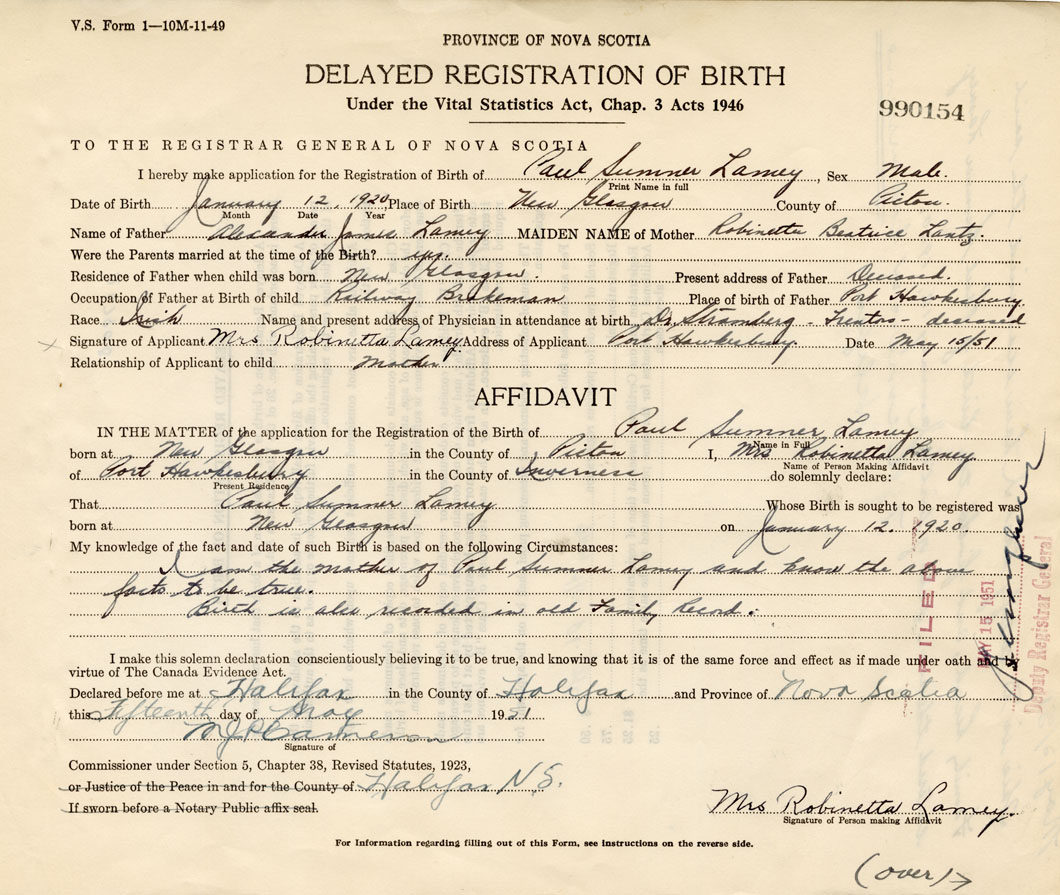 V.S. Form 1—10M-11-49
PROVINCE OF NOVA SCOTIA
DELAYED REGISTRATION OF BIRTH
Under the Vital Statistics Act, Chap. 3 Acts 1946
990154
TO THE REGISTRAR GENERAL OF NOVA SCOTIA
I hereby make application for the Registration of Birth of Paul Sumner Lamey, Sex Male.
Print Name in full
Date of Birth January 12, 1920 Place of Birth New Glasgow County of Pictou.
Month Date Year
Name of Father Alexander James Lamey MAIDEN NAME of Mother Robinetta Beatrice Lantz.
Were the Parents married at the time of the Birth? yes.
Residence of Father when child was born New Glasgow. Present address of Father Deceased.
Occupation of Father at Birth of child Railway Brakeman Place of birth of Father Port Hawkesbury.
Race Irish Name and present address of Physician in attendance at birth Dr. Stramberg - Trenton - deceased
x Signature of Applicant Mrs Robinetta Lamey Address of Applicant Port Hawkesbury Date May 15/51
Relationship of Applicant to child Mother
AFFIDAVIT
IN THE MATTER of the application for the Registration of the Birth of Paul Sumner Lamey
Name in Full
born at New Glasgow in the County of Pictou I, Mrs Robinetta Lamey
Name of Person Making Affidavit
of Port Hawkesbury in the County of Inverness do solemnly declare:
Present Residence
That Paul Sumner Lamey Whose Birth is sought to be registered was
born at New Glasgow on January 12, 1920
My knowledge of the fact and date of such Birth is based on the following Circumstances:
I am the mother of Paul Sumner Lamey and know the above
facts to be true.
Birth is also recorded in old Family Record.
I make this solemn declaration conscientiously believing it to be true, and knowing that it is of the same force and effect as if made under oath and by
virtue of The Canada Evidence Act.
Declared before me at Halifax in the County of Halifax and Province of Nova Scotia
this Fifteenth day of May 1951
Cameron
Signature of
Commissioner under Section 5, Chapter 38, Revised Statutes, 1923,
or Justice of the Peace in and for the County of Halifax N.S.
If sworn before a Notary Public affix seal.
Mrs Robinetta Lamey.
Signature of Person making Affidavit
For Information regarding filling out of this Form, see instructions on the reverse side.
(over)→
FILED
MAY 15 1951
Deputy Registrar General